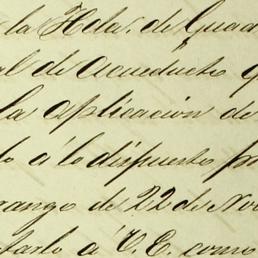 la Hda. de Guad
al de acueducto q
la aplicacion de
lo á lo dispuesto p
rango de 22 de No
tarlo á V. E. como